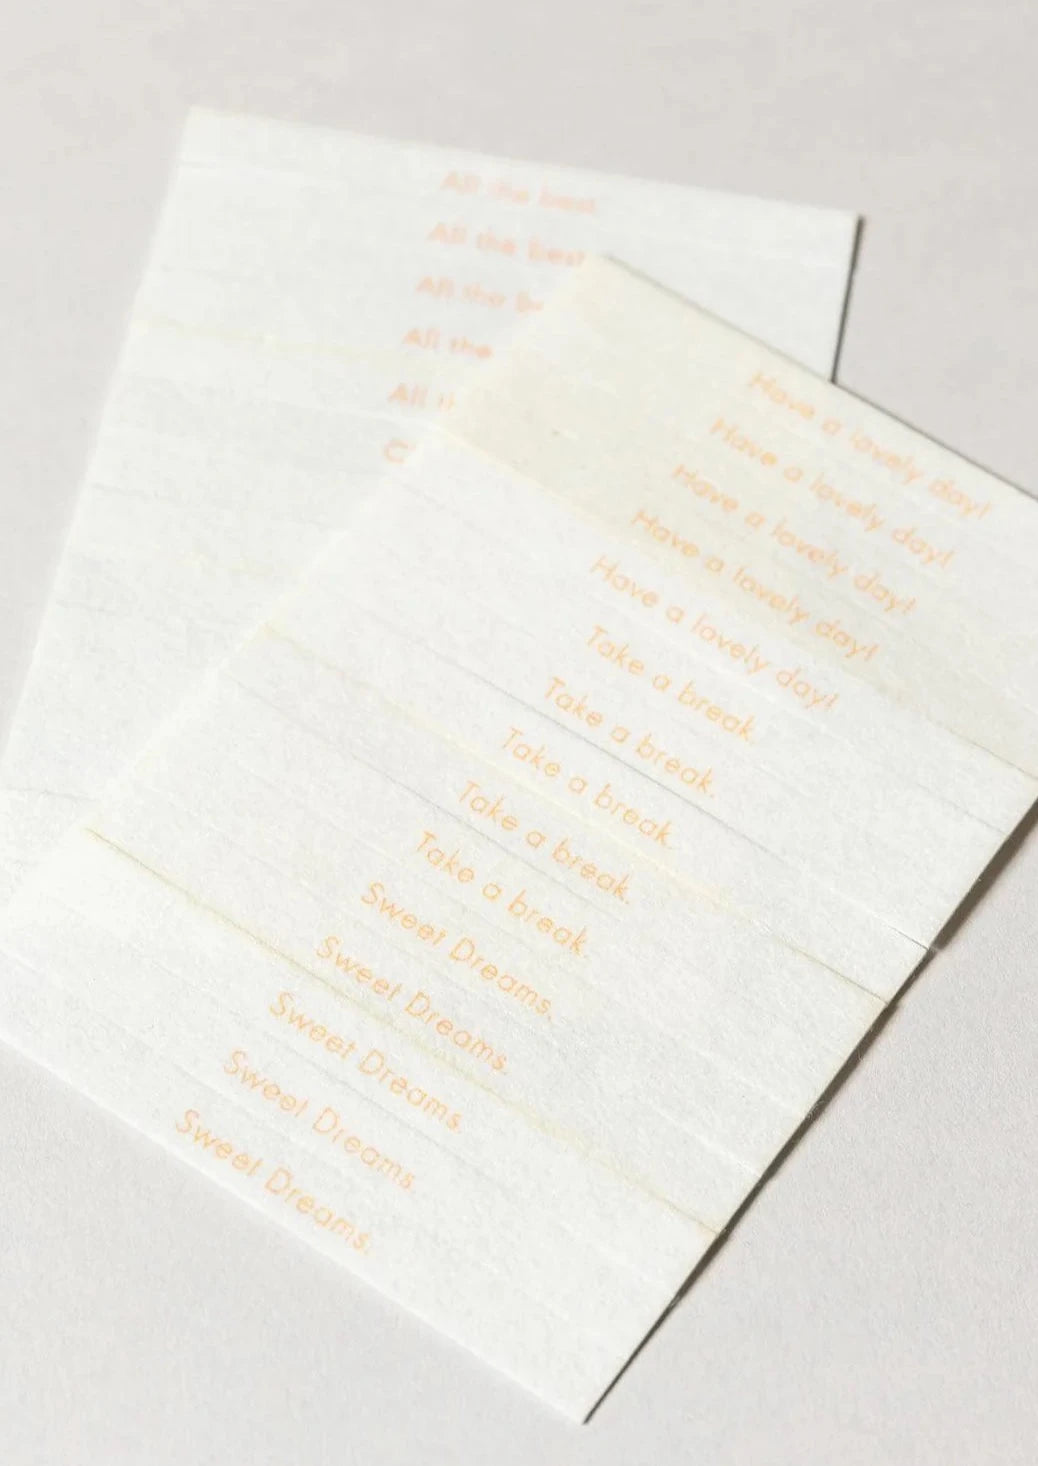 All the best.
All the best
All the
All the
All
Have a lovely day!
Have a lovely day!
Have a lovely day!
Have a lovely day!
Have a lovely day!
Take a break.
Take a break.
Take a break.
Take a break.
Take a break.
Sweet Dreams.
Sweet Dreams.
Sweet Dreams.
Sweet Dreams.
Sweet Dreams.